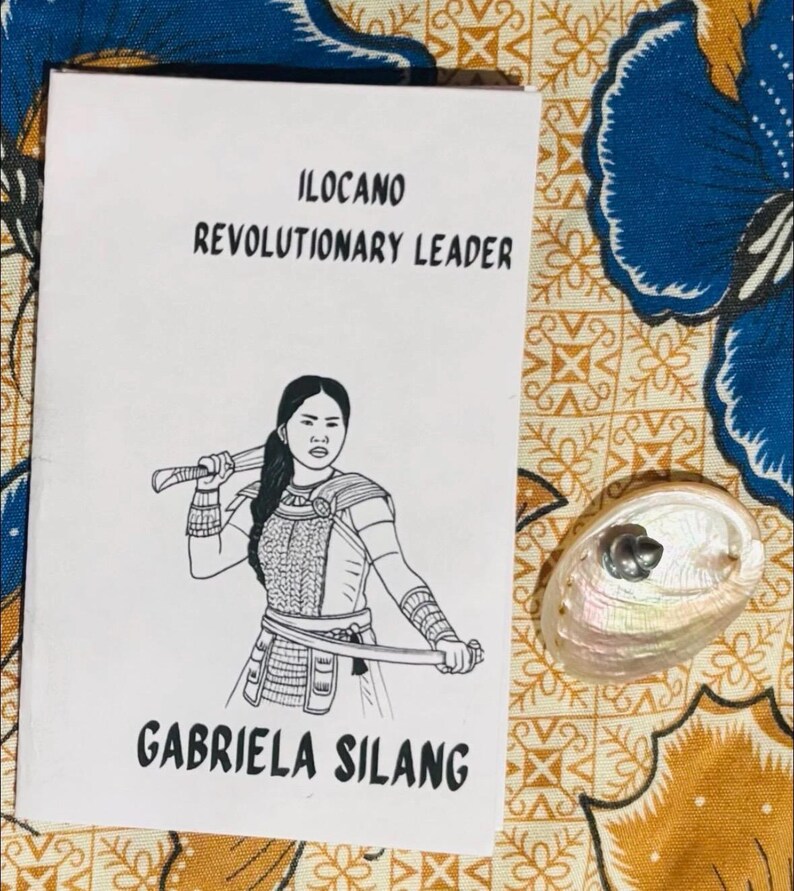 ILOCANO
REVOLUTIONARY LEADER
GABRIELA SILANG